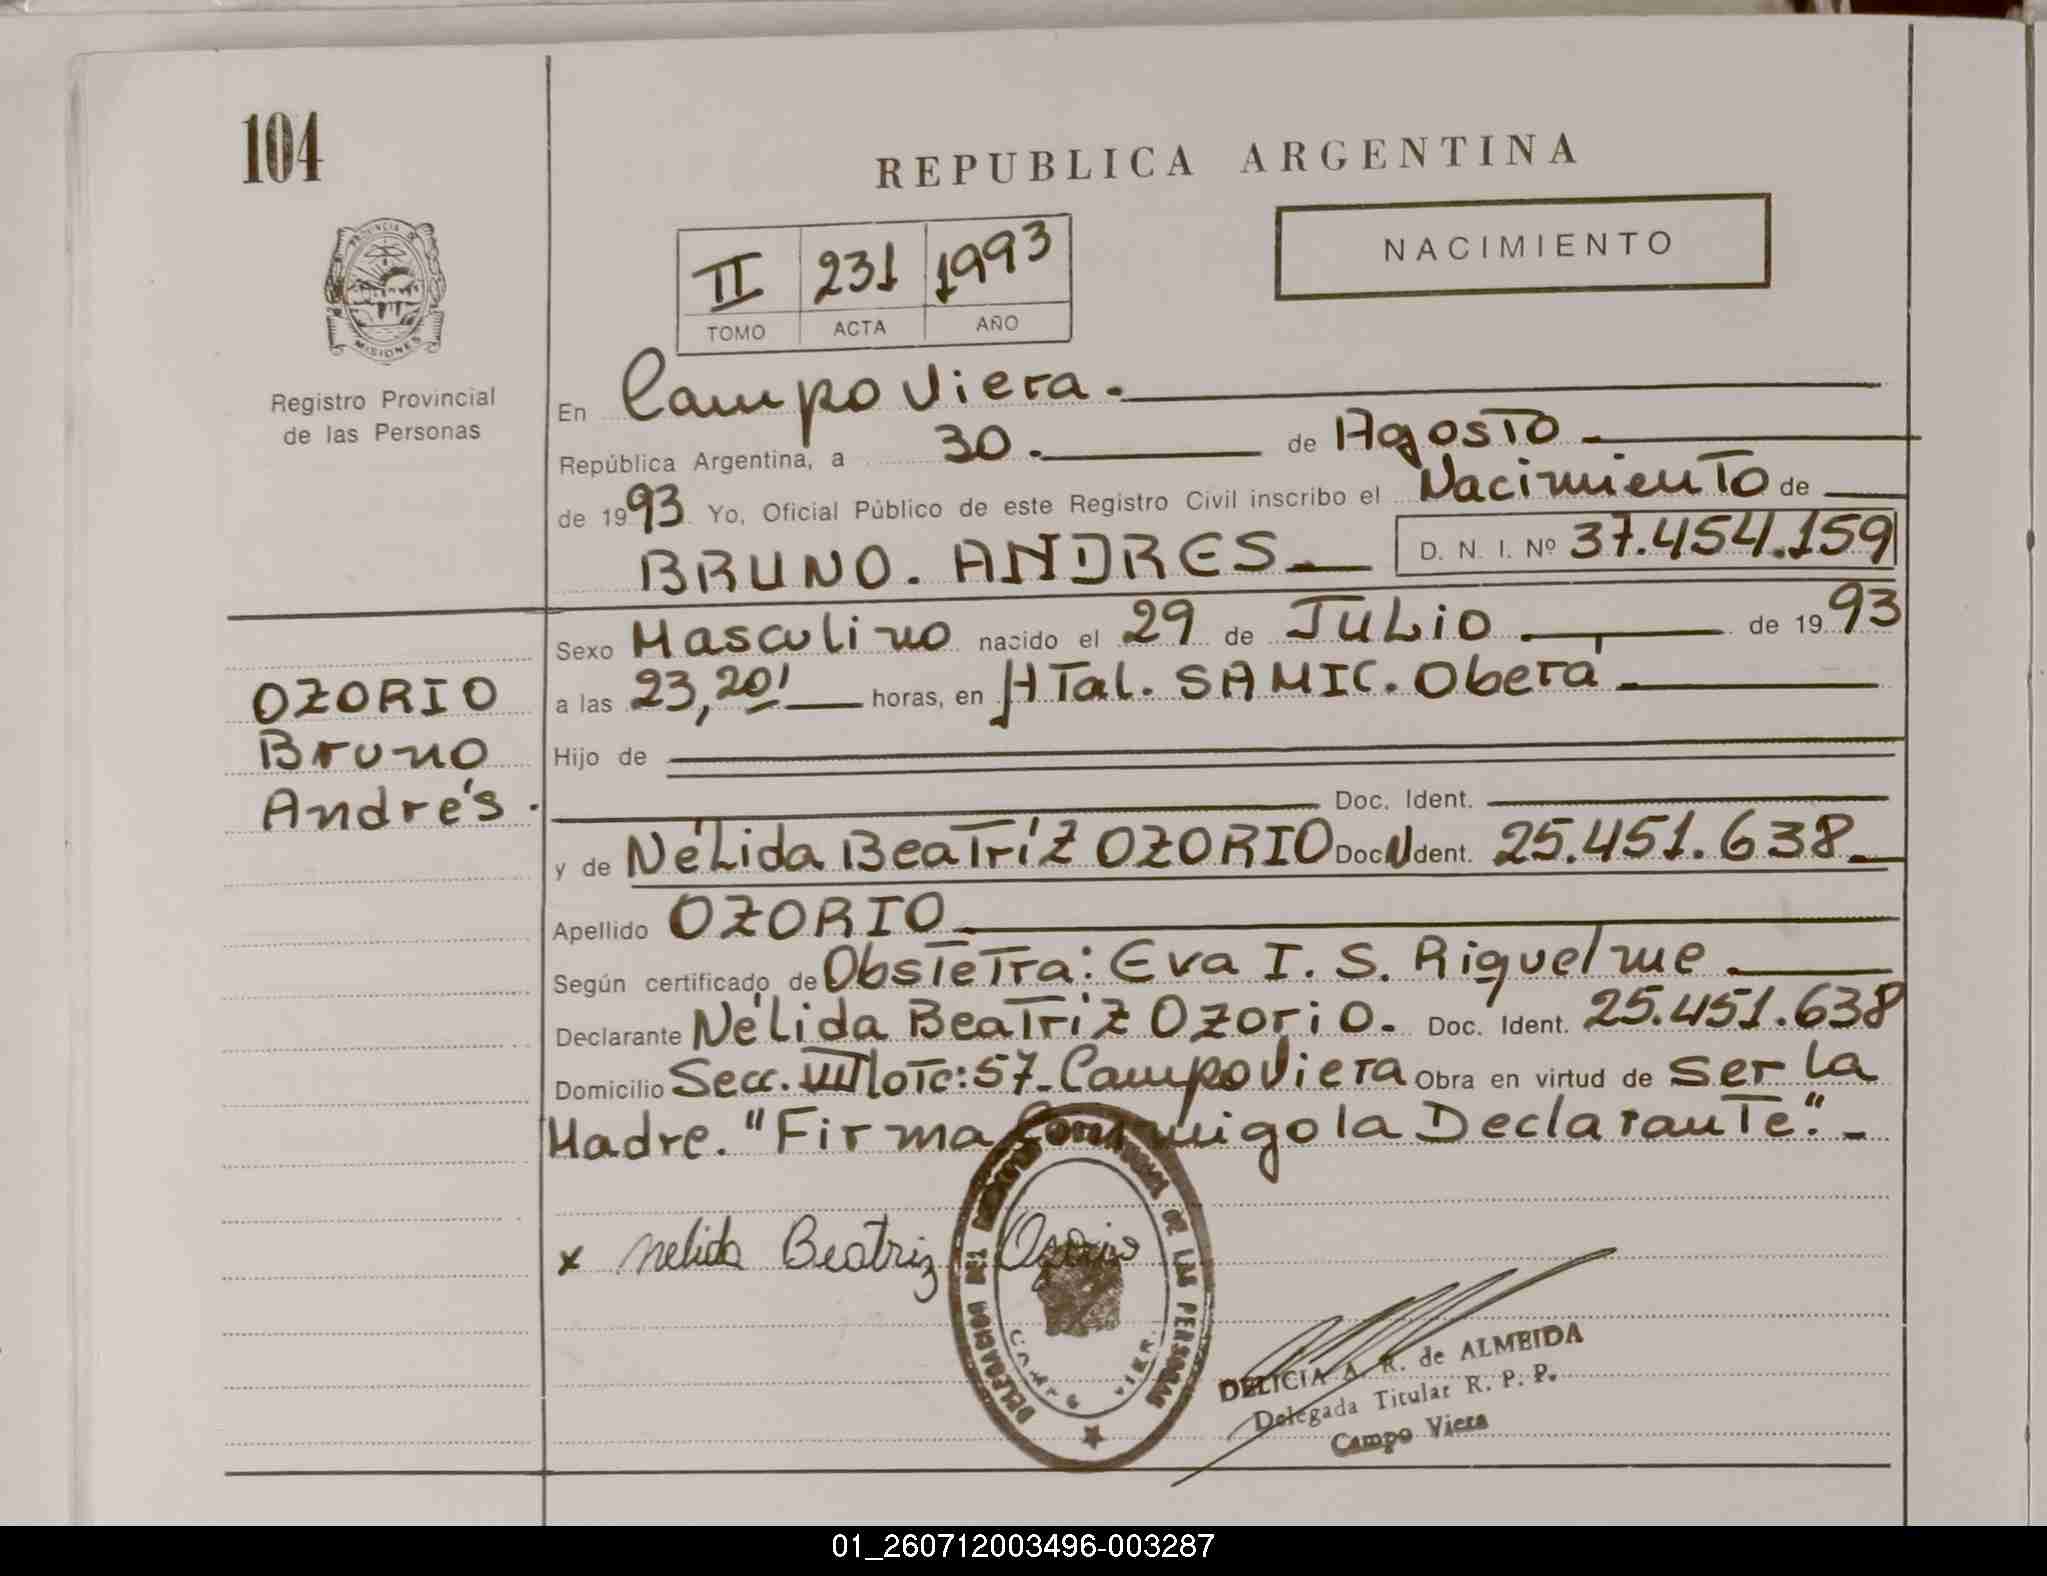 104
REPUBLICA ARGENTINA
NACIMIENTO
II 231 1993
TOMO ACTA AÑO
PROVINCIA DE MISIONES
Registro Provincial
de las Personas
En Campo Viera.
República Argentina, a 30. de Agosto
de 1993 Yo, Oficial Público de este Registro Civil inscribo el Nacimiento de
BRUNO. ANDRES D. N. I. Nº 37.454.159
Sexo Masculino nacido el 29 de Julio de 1993
a las 23,20' horas, en HTal. SAMIC. Oberá
Hijo de
Doc. Ident.
y de Nélida Beatríz OZORIO Doc. Ident. 25.451.638
Apellido OZORIO
Según certificado de Obstetra: Eva I. S. Riquelme
Declarante Nélida Beatríz Ozorio. Doc. Ident. 25.451.638
Domicilio Secc. VIII lote: 57 Campo Viera Obra en virtud de ser la
Madre. "Firma Conmigo la Declarante".
OZORIO
Bruno
Andrés.
x Nelida Beatriz Osorio
DELEGACION DEL REGISTRO PROVINCIAL DE LAS PERSONAS
CAMPO VIERA
DELICIA A. R. de ALMEIDA
Delegada Titular R. P. P.
Campo Viera
01_260712003496-003287